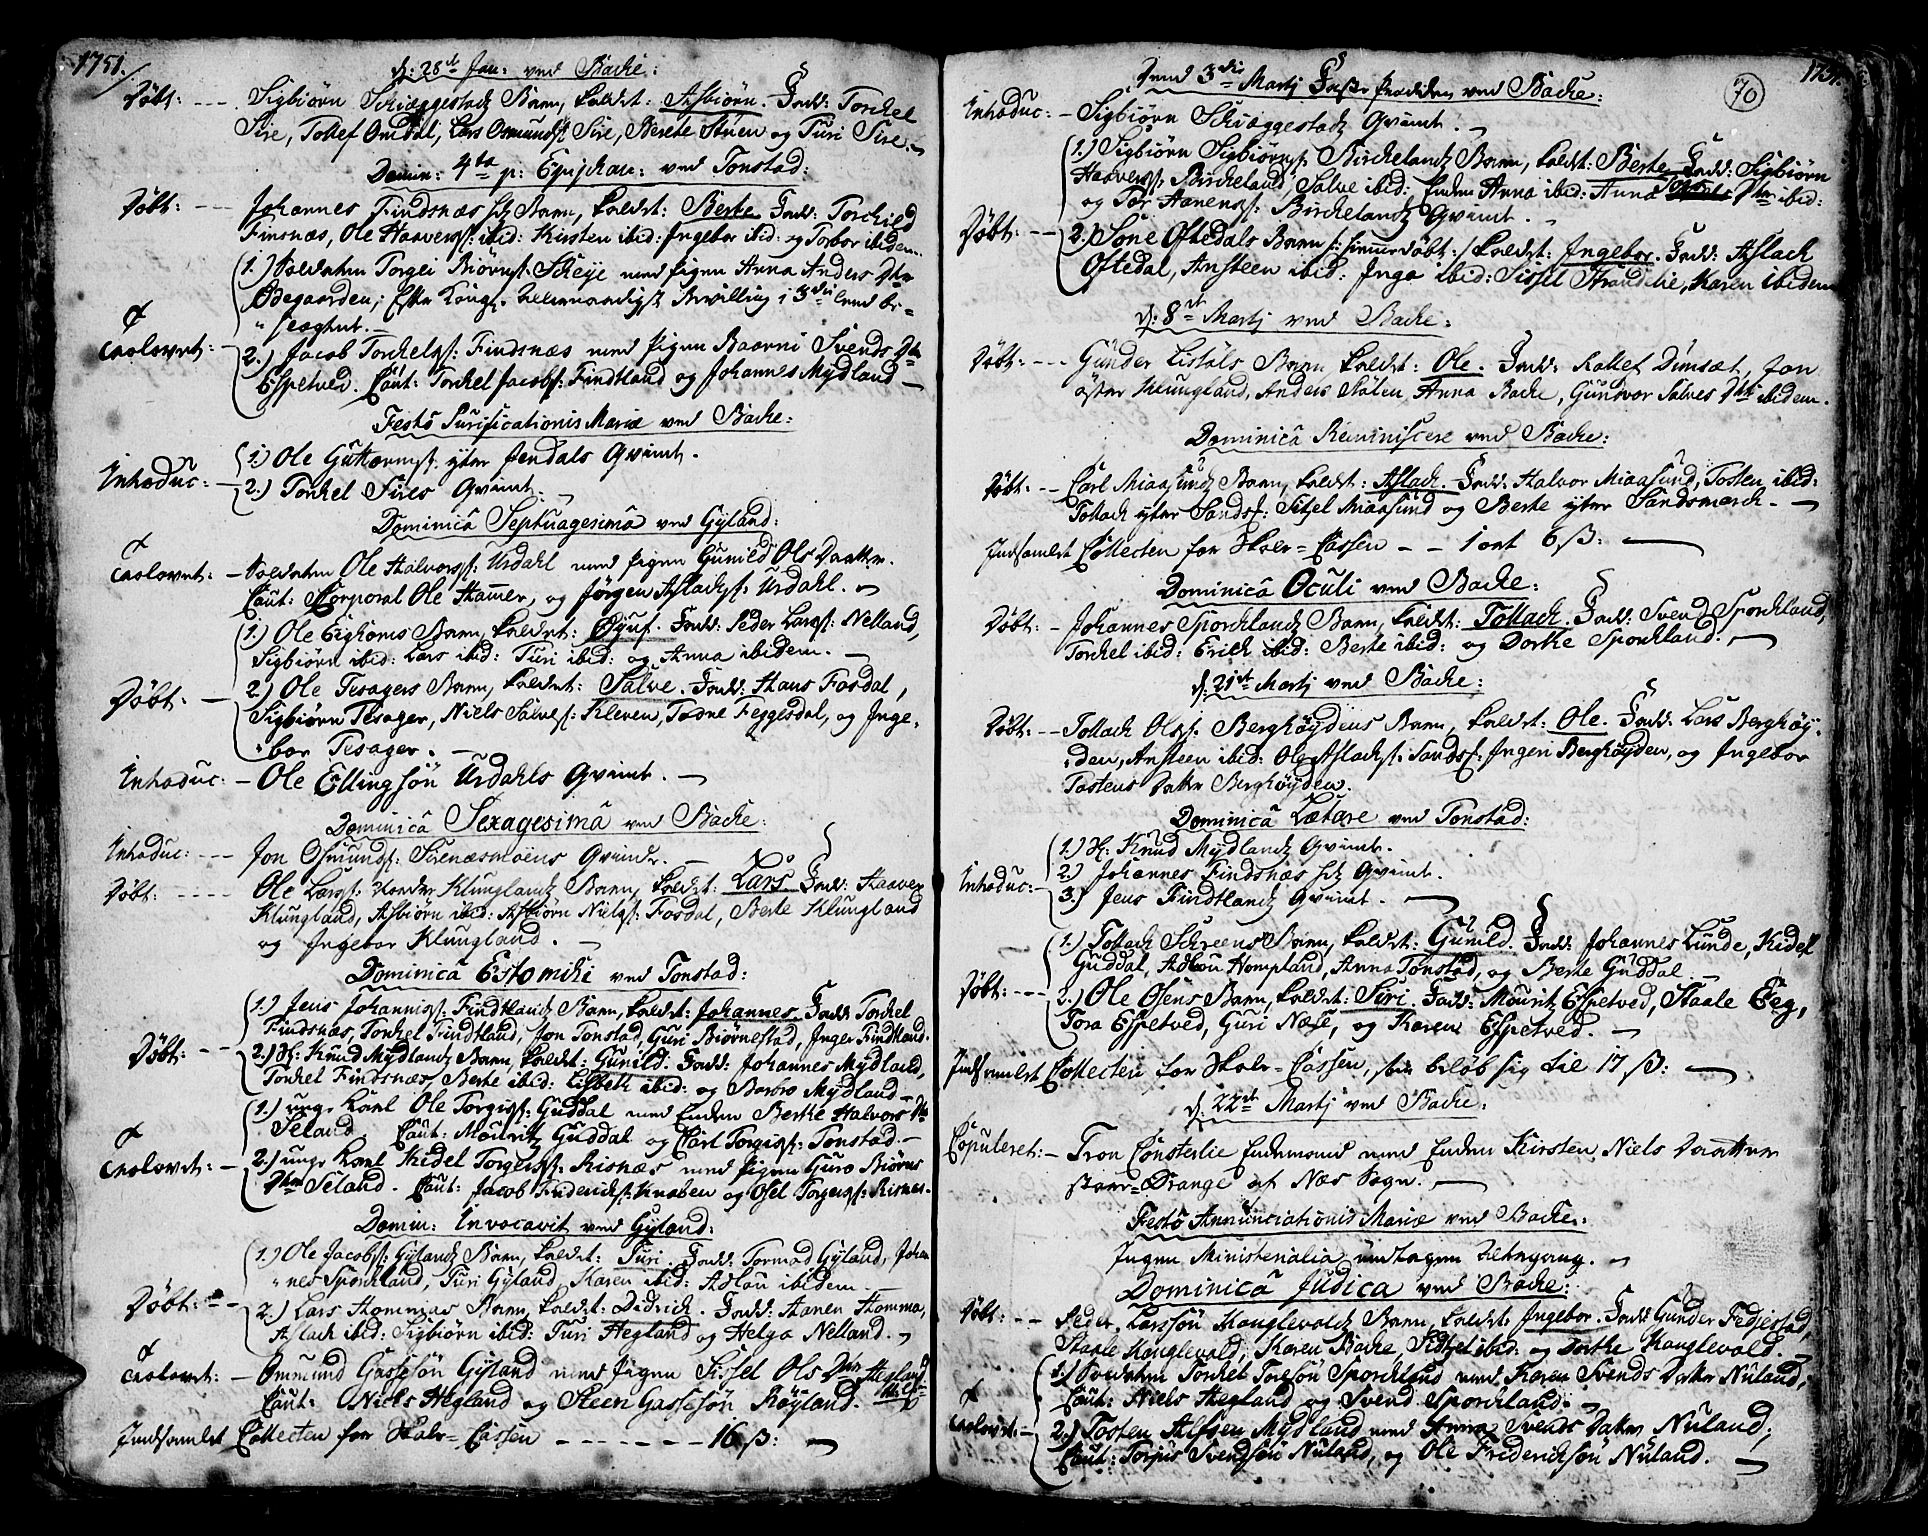 1751.
d: 28de Jan: ved Bache:
Døbt: --- Sigbiørn Schiæggestadz Barn, kaldet: Asbiørn. Fadd: Torchel
Sire, Tollef Omdal, Lars Osmunds: Sire, Berete Stuen og Turi Sire.
Domin: 4ta p: Epiphan: ved Tonstad:
Døbt: --- Johannes Findsnæs Barn, kaldet: Berte. Fadd: Torchild
Finsnæs, Ole Haavers: ibid: Kirsten ibid: Ingebor ibid: og Torbor ibidem.
1.) Soldaten Torgei Biørns: Scheÿe med Pigen Anna Anders Dtr
Øegaarden; Efter Kongl. allernaadigst bevilling i 3die leed be-
slægtet.
Trolovet: - 2.) Jacob Torchels: Findsnæs med Pigen Baarni Svends Dtr
Espetved. Caut: Torchel Jacobs: Findtland og Johannes Mydland
Festo Purificationis Mariæ ved Bache:
1.) Ole Guttorms: ytre Jendals Qvinde.
Introduc: - 2.) Torkel Sires Qvinde.
Dominica Septuagesima ved Gyland:
Trolovet: - Soldaten Ole Halvors: Urdahl med Pigen Gunild Ols Daatter.
Caut: Corporal Ole Hamer, og Jørgen Aslachs: Urdahl.
1.) Ole Eighoms Barn, kaldet: Øyuf. Fadd: Peder Lars: Nelland,
Sigbiørn ibid: Lars ibid: Turi ibid: og Anna ibidem.
Døbt: - 2.) Ole Tesagers Barn, kaldet: Salve. Fadd: Hans Fosdal,
Sigbiørn Tesager, Niels Salves: Kleven, Todne Feggesdal, og Inge-
bor Tesager.
Introduc: - Ole Ellingsøn Urdahls Qvinde.
Dominica Sexagesima ved Bache:
Introduc: --- Jon Osmunds: Sirenæsmoens Qvinde.
Døbt: ---- Ole Lars: Klunglandz Barn, kaldet: Lars. Fadd: Haaver
Klungland, Asbiørn ibid: Asbiørn Niels: Fosdal, Berte Klungland
og Ingebor Klungland.
Dominica Estomihi ved Tonstad:
1.) Jens Johannis: Findtlandz Barn, kaldet: Johannes. Fadd: Torkel
Findsnæs, Torkel Findtland, Jon Tonstad, Guri Biørnestad, Inger Findtland.
Døbt: -- 2.) H: Knud Mydlandz Barn, kaldet: Gunild. Fadd: Johannes Mydland,
Torkel Findsnæs, Berte ibid: Lisbeth ibid: og Barbro Mydland.
1.) unge Karl Ole Torgis: Guddal med Enken Berthe Halvors Dtr
Seland. Caut: Mouritz Guddal og Carl Torgis: Tonstad.
Trolovet: - 2.) unge Karl Kidel Torgers: Risnæs med Pigen Guro Biørns
Dtr Seland. Caut: Jacob Friderichs: Knaben og Osel Torgers: Risnes.
Domin: Invocavit ved Gyland:
1.) Ole Jacobs: Gylandz Barn, kaldet: Turi. Fadd: Tormod Gyland, Johan-
nes Sporckland, Turi Gyland, Karen ibid: Adlou ibidem
Døbt: -- 2.) Lars Hommes Barn, kaldet: Didrich. Fadd: Hanen Homma,
Aslach ibid: Sigbiørn ibid: Turi Hegland og Helga Nelland.
Trolovet: - Ommund Gassesøn Gyland med Pigen Sissel Ols Dtr Hegland
Caut: Niels Hegland og Steen Gassesøn Røyland.
Indsamlet Collecten for Skole-Cassen ------ 16 ß:
1751. 70
Dend 3die Martj Faste Prædiken ved Bache:
Introduc: - Sigbiørn Schiæggestadz Qvinde.
1.) Sigbiørn Sigbiørns: Birchelandz Barn, kaldet: Berte. Fadd: Sigbiørn
Haavers: Bircheland, Salve ibid: Enken Anna ibid: Anna Dtr ibid:
og Tør Hanens: Birchelandz Qvinde.
Døbt: -- 2.) Sone Oftedals Barn /: hiemmedøbt: / kaldet: Ingebor. Fadd: Aslach
Oftedal, Ansteen ibid: Inga ibid: Sissel Strandelie, Karen ibidem
d: 8de Martj ved Bache:
Døbt: --- Gunder Listøls Barn kaldet: Ole. Fadd: Rollef Dunsæt, Jon
øfter Klungland, Anders Stølen Anna Bache, Gundvor Salves Dtr ibidem.
Dominica Reminiscere ved Bache:
Døbt: -- Carl Miaasundz Barn, kaldet: Aslach. Fadd: Halvor Miaasund, Tosten ibid:
Tollach ytre Sands: Sitzel Miaasund og Berte ytre Sandsmarch.
Indsamlet Collecten for Skole-Cassen -- 1 ort 6 ß:
Dominica Oculi ved Bache:
Døbt: - Johannes Sporcklandz Barn, kaldet: Tollach. Fadd: Svend Sporckland,
Torckel ibid: Erich ibid: Berte ibid: og Dorthe Sporckland.
d: 21de Martj ved Bache:
Døbt: -- Tollach Ols: Berghøydens Barn, kaldet: Ole. Fadd: Lars Berghøy-
den, Ansteen ibid: Ole Aslachs: Sands: Ingeri Berghøyden, og Ingebor
Tostens Datter Berghøyden.
Dominica Lætare ved Tonstad:
1.) H: Knud Mydlandz Qvinde.
2.) Johannes Findsnæs Qvinde.
Introduc: - 3.) Jens Findtlandz Qvinde.
1.) Tollach Schreens Barn, kaldet: Gunild. Fadd: Johannes Lunde, Kidel
Guddal, Adlou Hompland, Anna Tonstad, og Berte Guddal.
Døbt: --- 2.) Ole Osens Barn, kaldet: Siri. Fadd: Mouritz Espetved, Staale Eeg,
Tora Espetved, Guri Næse, og Karen Espetved.
Indsamlet Collecten for Skole-Cassen, beløb sig til 17 ß:
d: 22de Martj ved Bache:
Copuleret: - Tron Consterlie Enkemand med Enken Kirsten Niels Daatter
store-Drange af Næs Sogn.
Festo Annunciationis Mariæ ved Bache:
Ingen Ministerialia undtagen Altergang.
Dominica Judica ved Bache:
Døbt: -- Peder Larssøn Hauglevoldz Barn, kaldet: Ingebor. Fadd: Gunder Fedjestad,
Staale Hauglevold, Karen Bache, Sidsel ibid: og Dorthe Hauglevold.
1.) Soldaten Torkel Toresøn Sporckland med Karen Svends Datter Nuland;
Caut: Niels Hegland og Svend Sporckland.
Trolovet: - 2.) Tosten Alfsen Mydland med Anna Svends Datter Nuland;
Caut: Torjus Svendsøn Nuland, og Ole Frederichsøn Nuland.